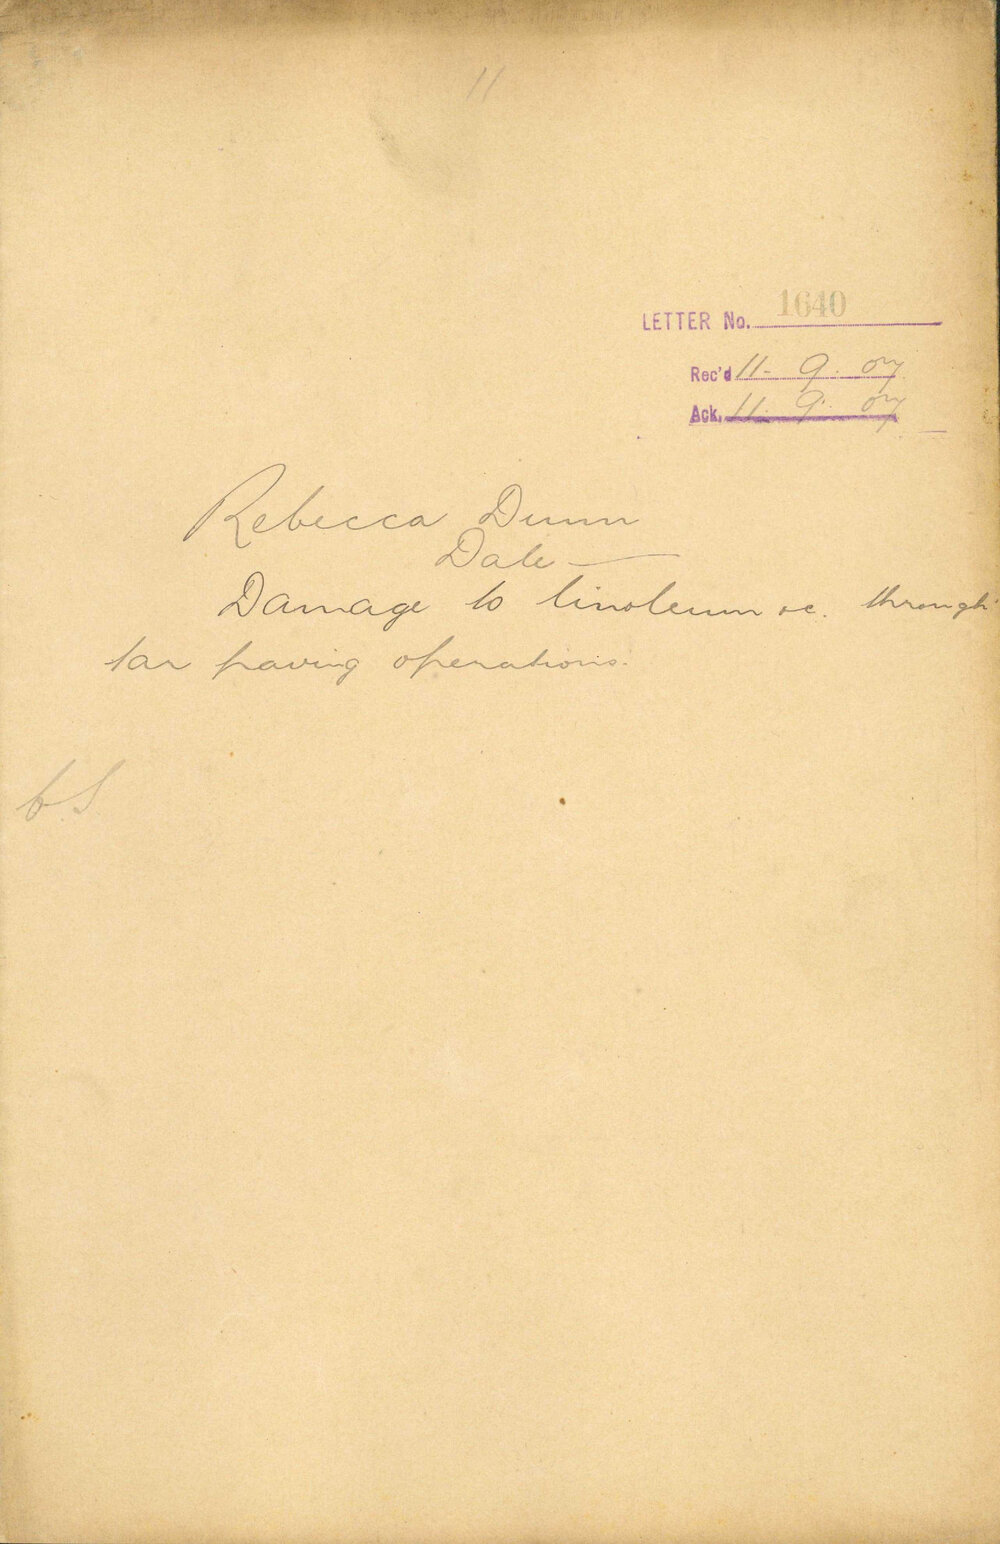 11
LETTER No. 1640
Rec'd 11- 9. 07
Ack. 11. 9. 07
Rebecca Dunn
Date —
Damage to linoleum &c. through
tar paving operations.